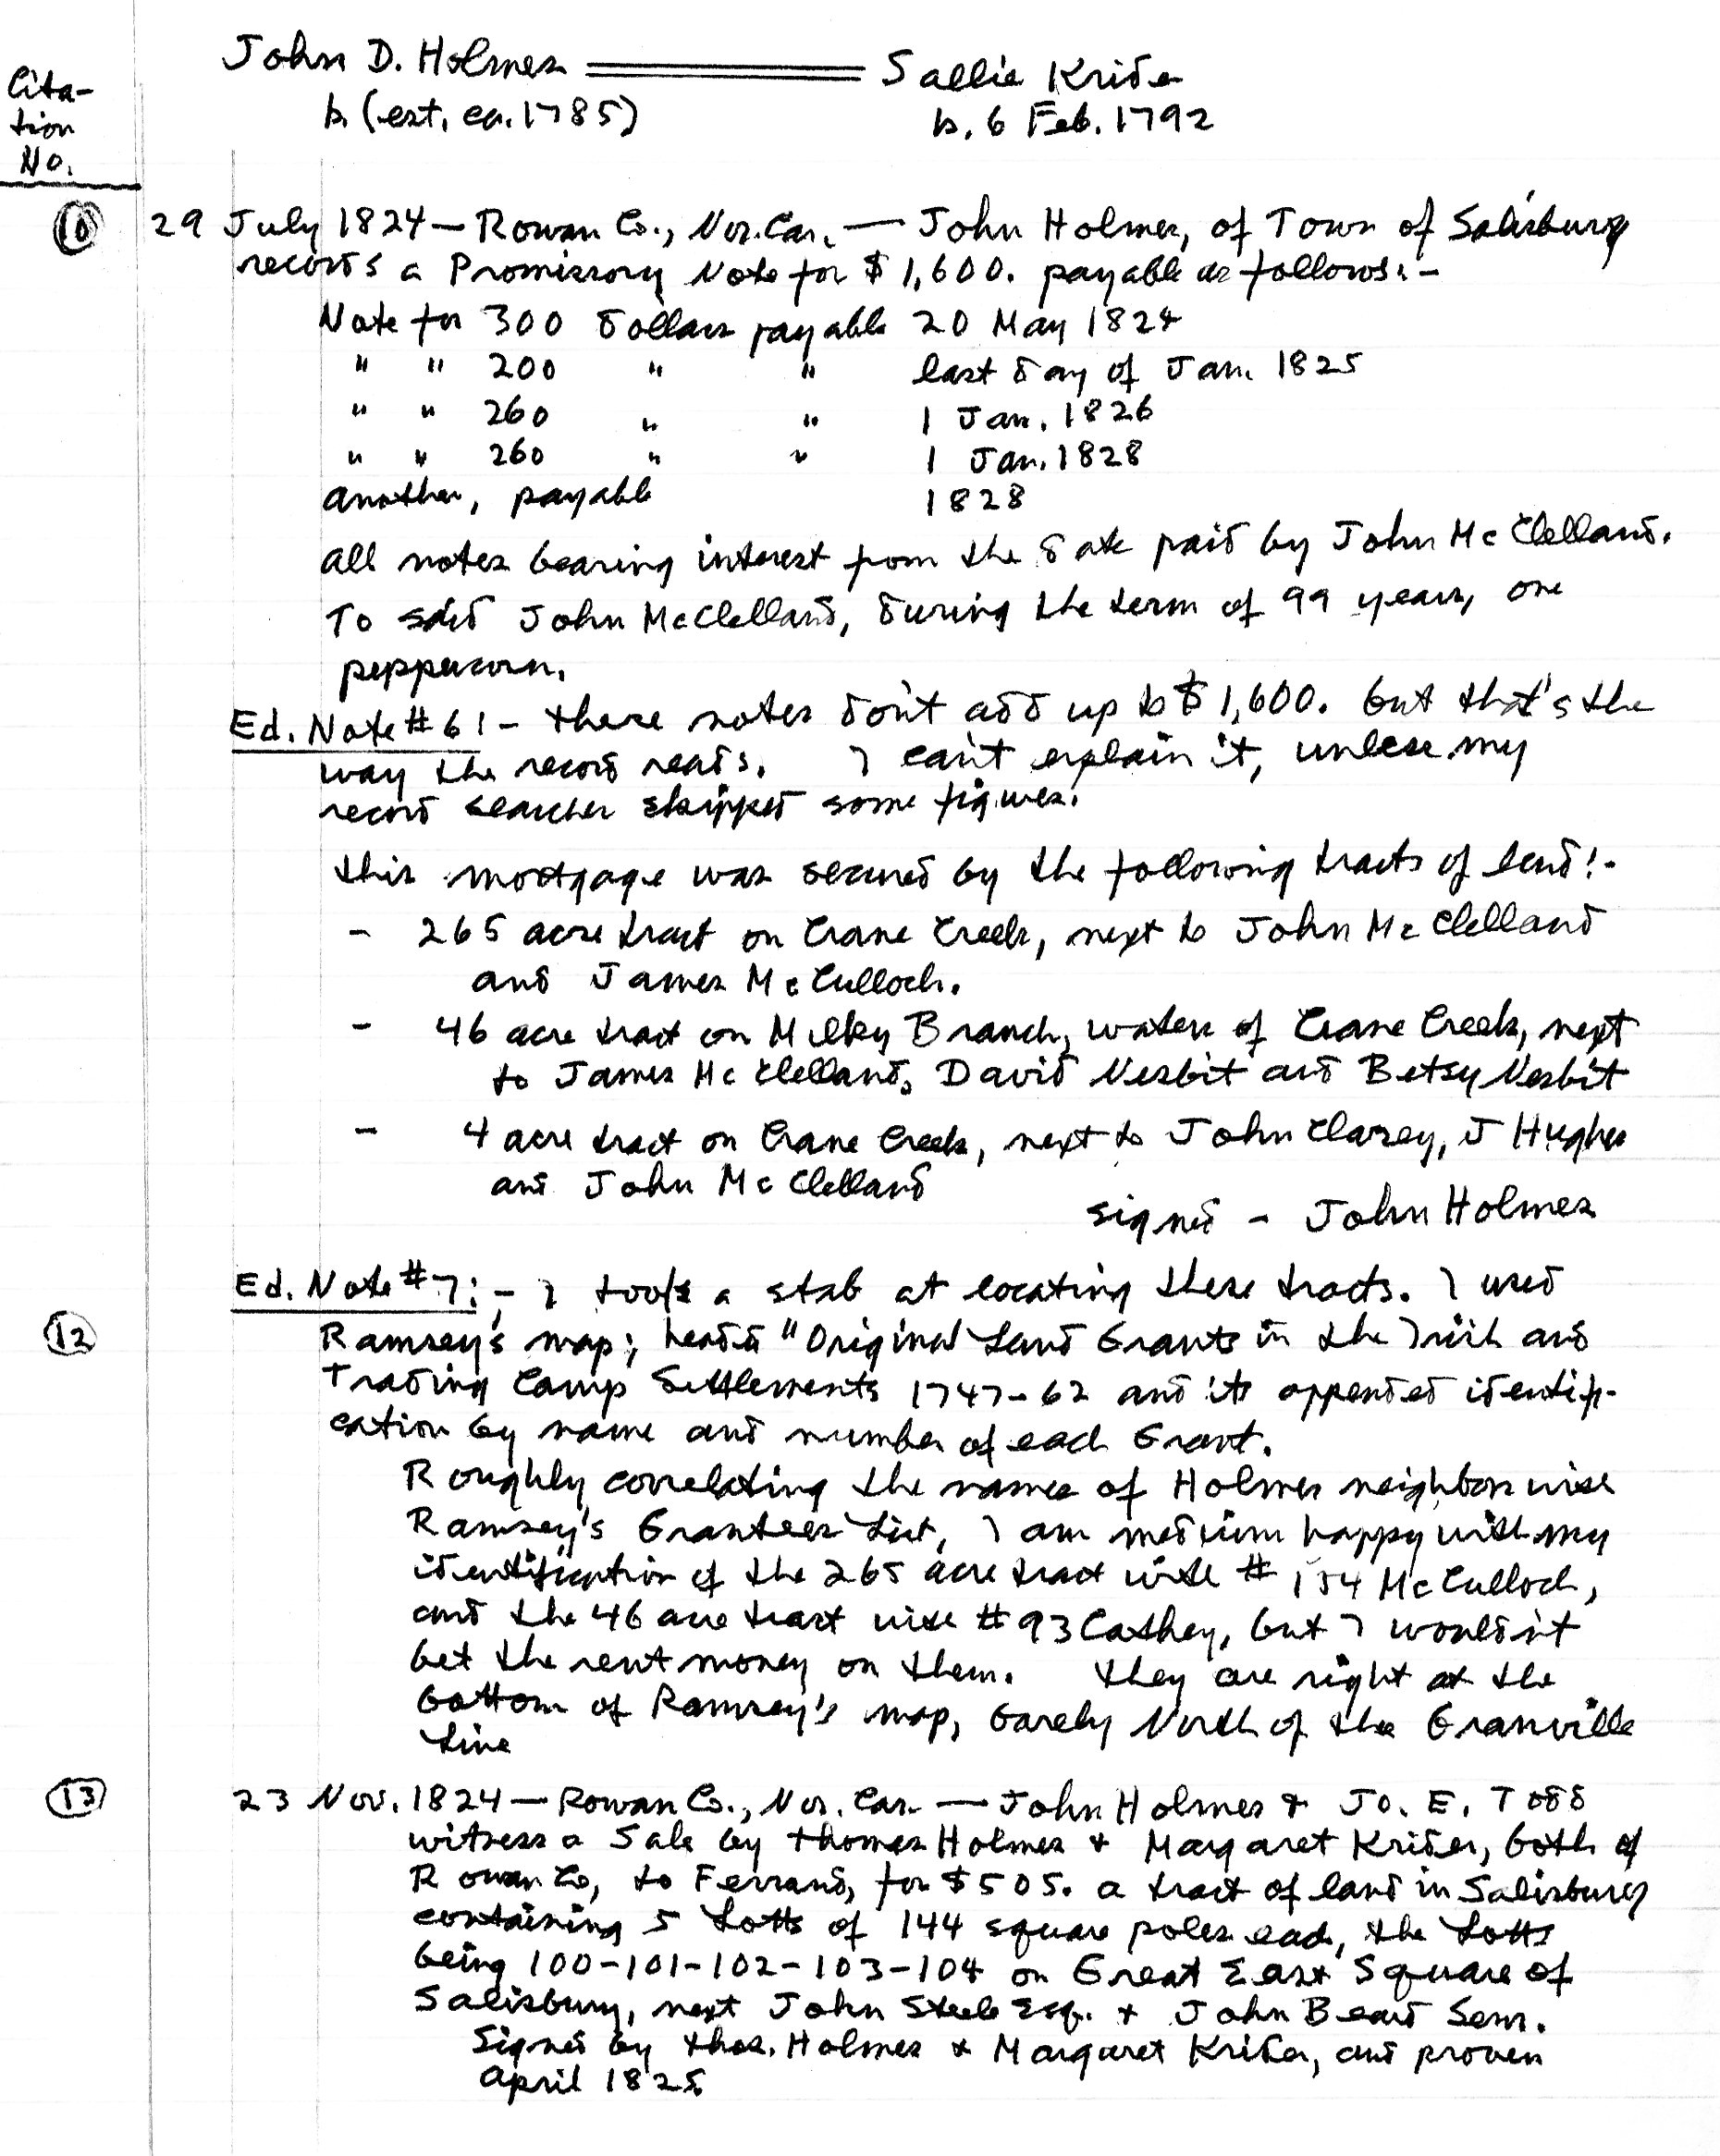 John D. Holmes ═════ Sallie Krider
b. (est. ca. 1785) b. 6 Feb. 1792
Cita-
tion
No.
10 29 July 1824 — Rowan Co., Nor. Car. — John Holmes, of Town of Salisbury
records a Promissory Note for $1,600. payable as follows:-
Note for 300 dollars payable 20 May 1824
" " 200 " " last day of Jan. 1825
" " 260 " " 1 Jan. 1826
" " 260 " " 1 Jan. 1828
another, payable 1828
all notes bearing interest from the date paid by John McClelland.
To said John McClelland, during the term of 99 years, one
peppercorn.
Ed. Note #61 - these notes don't add up to $1,600. but that's the
way the record reads. I can't explain it, unless my
record searcher skipped some figures.
this mortgage was secured by the following tracts of land:-
- 265 acre tract on Crane Creek, next to John McClelland
and James McCulloch.
- 46 acre tract on Milky Branch, waters of Crane Creek, next
to James McClelland, David Nesbit and Betsy Nesbit
- 4 acre tract on Crane Creek, next to John Clarey, J Hughes
and John McClelland
signed - John Holmes
Ed. Note #7: - I took a stab at locating these tracts. I used
12 Ramsey's map; headed "Original Land Grants in the Irish and
Trading Camp Settlements 1747-62 and its appended identifi-
cation by name and number of each Grant.
Roughly correlating the names of Holmes neighbors with
Ramsey's Grantees List, I am medium happy with my
identification of the 265 acre tract with # McCulloch,
and the 46 acre tract with #93 Cathey, but I wouldn't
bet the rent money on them. they are right at the
bottom of Ramsey's map, barely North of the Granville
Line
13 23 Nov. 1824 — Rowan Co., Nor. Car. — John Holmes & Jo. E. Todd
witness a Sale by Thomas Holmes & Margaret Krider, both of
Rowan Co, to Ferrand, for $505. a tract of land in Salisbury
containing 5 Lotts of 144 square poles each, the Lotts
being 100-101-102-103-104 on Great East Square of
Salisbury, next John Steele Esq. & John Beard Senr.
Signed by Thos. Holmes & Margaret Krider, and proven
April 1825